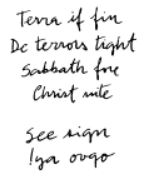 Terra if fin
De terrors tight
Sabbath fore
Christ mite
See sign
!ya ovgo